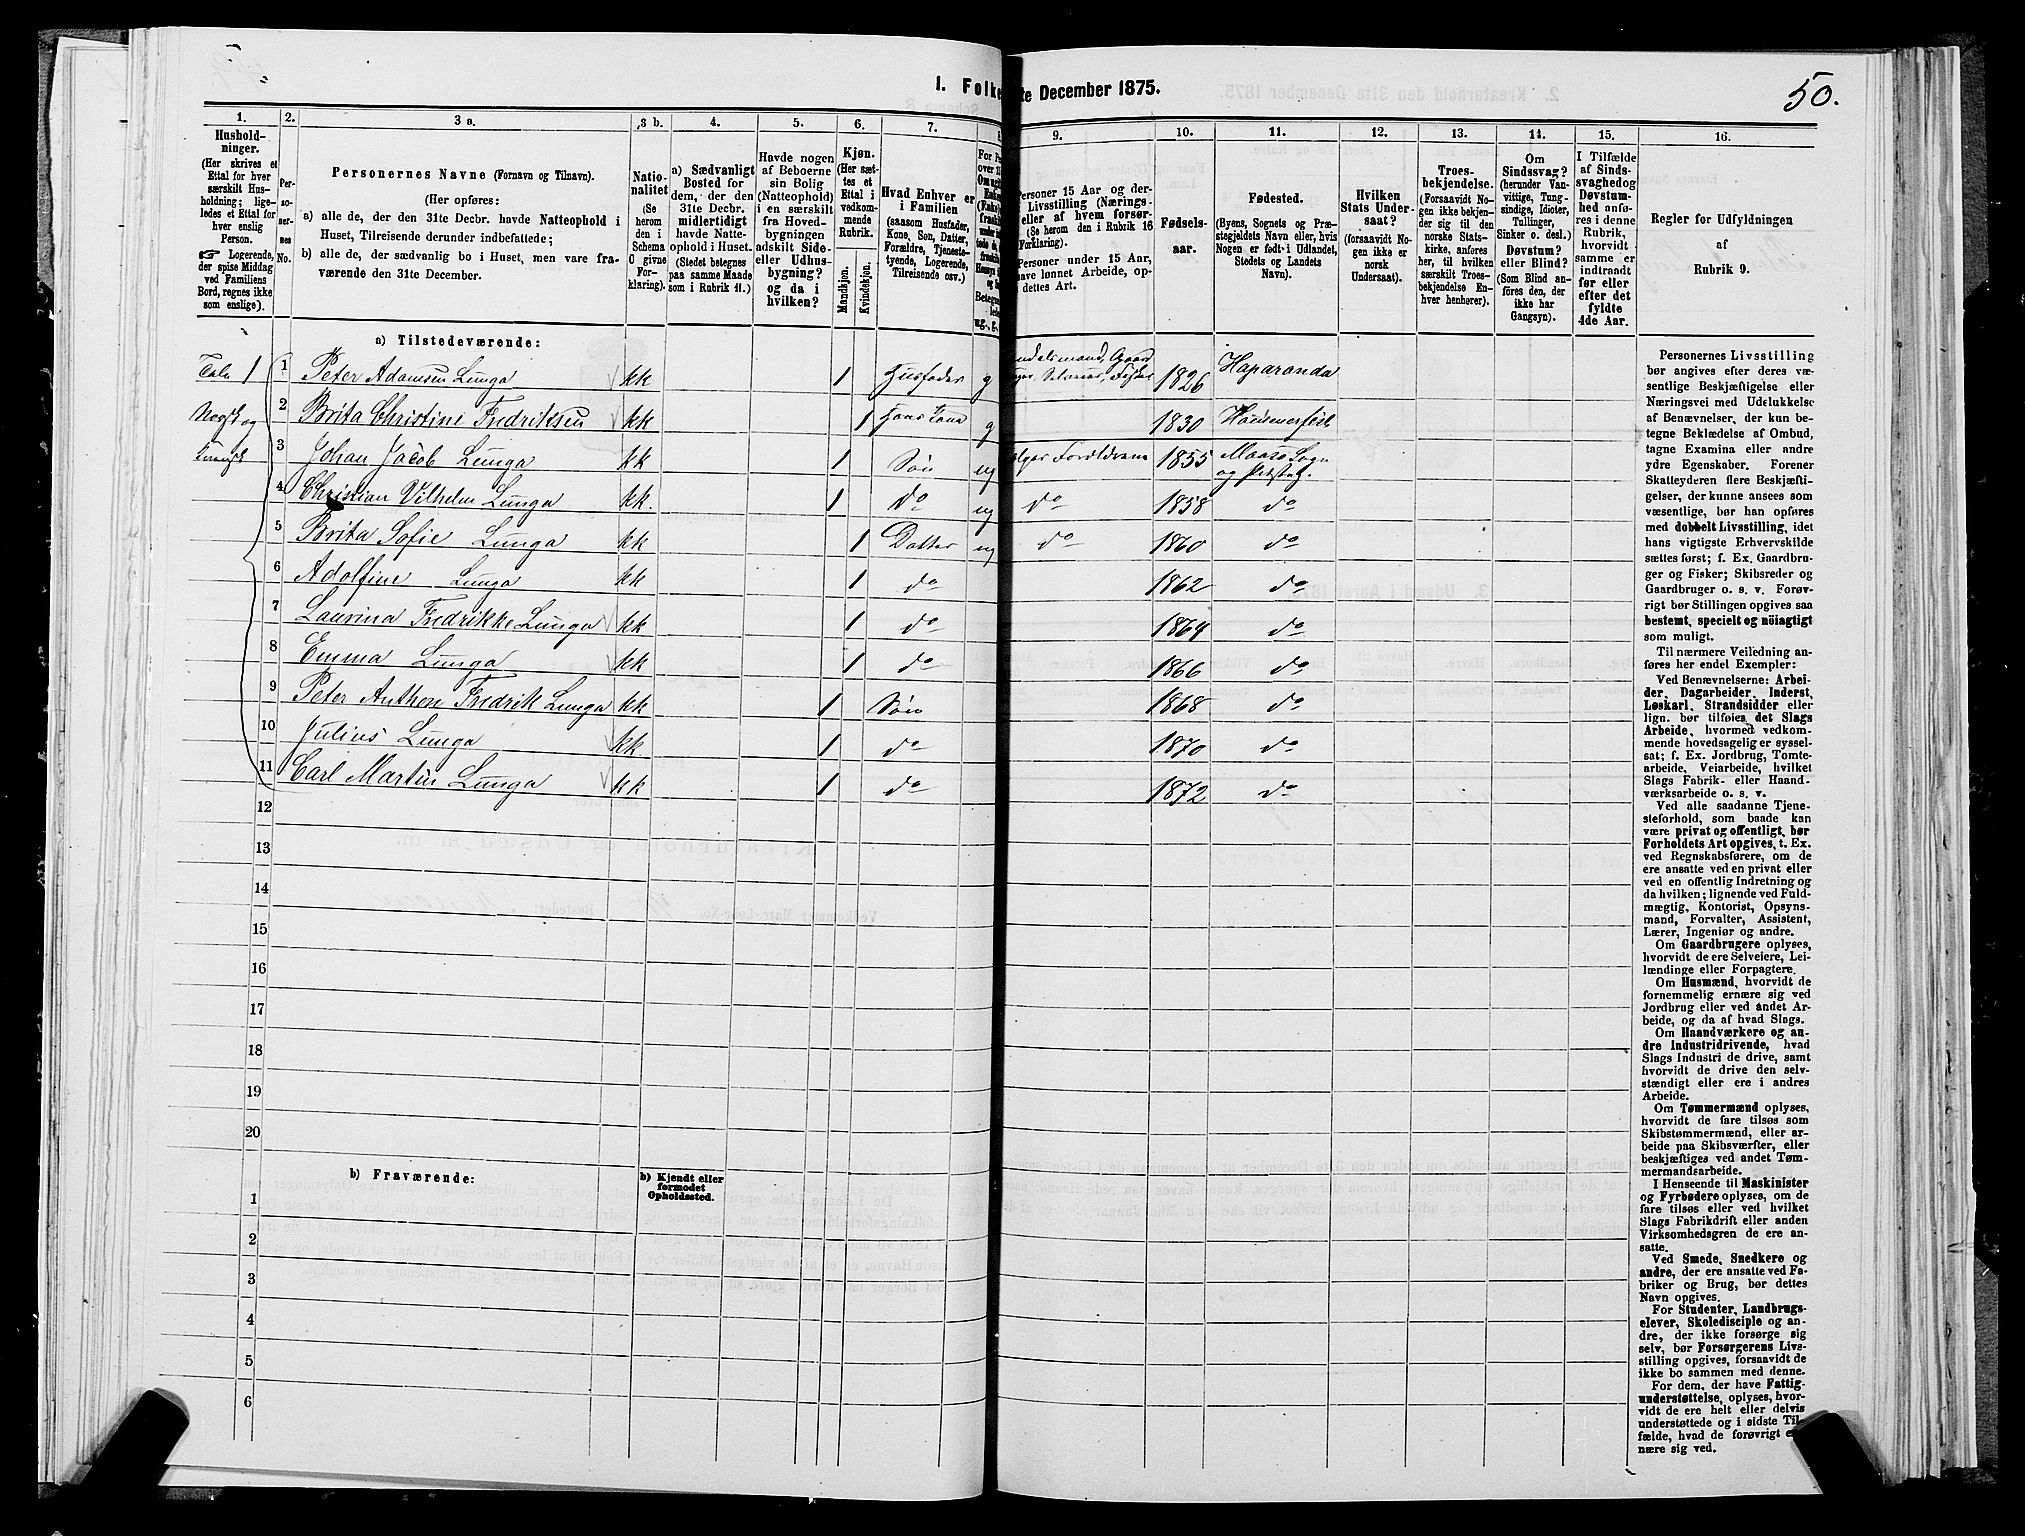 50.
I. Folke te December 1875.
1. 2. 3 a. 3 b. 4. 5. 6. 7. 8 9. 10. 11. 12. 13. 14. 15. 16.
Hushold-
ninger.
(Her skrives et
Ettal for hver
særskilt Hus-
holdning; lige-
ledes et Ettal for
hver enslig
Person.
☛ Logerende,
der spise Middag
ved Familiens
Bord, regnes ikke
som enslige).
Per-
so-
ner-
nes
No.
Personernes Navne (Fornavn og Tilnavn).
(Her opføres:
a) alle de, der den 31te Decbr. havde Natteophold i
Huset, Tilreisende derunder indbefattede;
b) alle de, der sædvanlig bo i Huset, men vare fra-
værende den 31te December.
Natio-
nalitet
(Se
herom
den i
Schema
O givne
For-
klaring).
a) Sædvanligt
Bosted for
dem, der den
31te Decbr.
midlertidigt
havde Natte-
ophold i Huset.
(Stedet betegnes
paa samme Maade
som i Rubrik 11.)
Havde nogen
af Beboerne
sin Bolig
(Natteophold)
i en særskilt
fra Hoved-
bygningen
adskilt Side-
eller Udhus-
bygning?
og da i
hvilken?
Kjøn.
(Her sæt-
tes et
Ettal i
vedkom-
mende
Rubrik.
Mandkjøn.
Kvindekjøn.
Hvad Enhver er
i Familien
(saasom Husfader,
Kone, Søn, Datter,
Forældre, Tjeneste-
tyende, Logerende,
Tilreisende osv.)
Personer 15 Aar og der-
Livsstilling (Nærings-
eller af hvem forsør-
(Se herom den i Rubrik 16
Forklaring).
Personer under 15 Aar,
have lønnet Arbeide, op-
dettes Art.
Fødsels-
aar.
Fødested.
(Byens, Sognets og Præ-
stegjeldets Navn eller, hvis
Nogen er født i Udlandet,
Stedets og Landets
Navn).
Hvilken
Stats Under-
saat?
(forsaavidt No-
gen ikke er
norsk
Undersaat).
Troes-
bekjendelse.
(Forsaavidt No-
gen ikke bekjen-
der sig til den
norske Stats-
kirke, anføres
her, til hvilken
særskilt Troes-
bekjendelse En-
hver henhører).
Om
Sindssvag?
(herunder Van-
vittige, Tung-
sindige, Idioter,
Tullinger,
Sinker o. desl.)
Døvstum?
eller Blind?
(Som Blind an-
føres den, der
ikke har
Gangsyn).
I Tilfælde
af Sinds-
svaghed og
Døvstum-
hed anfø-
res i denne
Rubrik,
hvorvidt
samme er
indtraadt
før eller
efter det
fyldte
4de Aar.
Regler for Udfyldningen
af
Rubrik 9.
a) Tilstedeværende:
1 1 Peter Adamsen Lunga kk 1 Husfader g 1826 Haparanda
Norsk og 2 Brita Christine Fredriksen kk 1 Hans Kone g 1830
3 Johan Jacob Lunga kk 1 Søn ug 1855 Maasø Sogn
og Præsteg.
4 Christian Vilhelm Lunga kk. 1 do ug do 1858 do
5 Brita Sofie Lunga kk 1 Datter ug do 1860 do
6 Adolfine Lunga kk 1 do 1862 do
7 Laurina Fredrikke Lunga kk 1 do 1864 do
8 Emma Lunga kk 1 do 1866 do
9 Peter Anthon Fredrik Lunga kk 1 Søn 1868 do
10 Julius Lunga kk. 1 do 1870 do
11 Carl Martin Lunga kk 1 do 1872 do
12
13
14
15
16
17
18
19
20
b) Fraværende:
b) Kjendt eller
formodet
Opholdssted.
1
2
3
4
5
6
Personernes Livsstilling
bør angives efter deres væ-
sentlige Beskjæftigelse eller
Næringsvei med Udelukkelse
af Benævnelser, der kun be-
tegne Beklædelse af Ombud,
tagne Examina eller andre
ydre Egenskaber. Forener
Skatteyderen flere Beskjæfti-
gelser, der kunne ansees som
væsentlige, bør han opføres
med dobbelt Livsstilling, idet
hans vigtigste Erhvervskilde
sættes først; f. Ex. Gaardbru-
ger og Fisker; Skibsreder og
Gaardbruger o. s. v. Forøv-
rigt bør Stillingen opgives saa
bestemt, specielt og nöiagtigt
som muligt.
Til nærmere Veiledning an-
føres her endel Exempler:
Ved Benævnelserne: Arbei-
der, Dagarbeider, Inderst,
Løskarl, Strandsidder eller
lign. bør tilføies det Slags
Arbeide, hvormed vedkom-
mende hovedsagelig er syssel-
sat; f. Ex. Jordbrug, Tomte-
arbeide, Veiarbeide, hvilket
Slags Fabrik- eller Haand-
værksarbeide o. s. v.
Ved alle saadanne Tjene-
steforhold, som baade kan
være privat og offentligt, bør
Forholdets Art opgives, t. Ex.
ved Regnskabsførere, om de
ere ansatte ved en privat eller
ved en offentlig Indretning og
da hvilken; lignende ved Fuld-
mægtig, Kontorist, Opsyns-
mand, Forvalter, Assistent,
Lærer, Ingeniør og andre.
Om Gaardbrugere oplyses,
hvorvidt de ere Selveiere, Lei-
lændinge eller Forpagtere.
Om Husmænd, hvorvidt de
fornemmelig ernære sig ved
Jordbrug eller ved andet Ar-
beide, og da af hvad Slags.
Om Haandværkere og an-
dre Industridrivende, hvad
Slags Industri de drive, samt
hvorvidt de drive den selv-
stændigt eller ere i andres
Arbeide.
Om Tømmermænd oplyses,
hvorvidt de fare tilsøs som
Skibstømmermænd, eller ar-
beide paa Skibsværfter, eller
beskjæftiges ved andet Tøm-
mermandsarbeide.
I Henseende til Maskinister
og Fyrbødere oplyses, om de
fare tilsøs eller ved hvilket
Slags Fabrikdrift eller anden
Virksomhedsgren de ere an-
satte.
Ved Smede, Snedkere og
andre, der ere ansatte ved Fa-
briker og Brug, bør dettes
Navn opgives.
For Studenter, Landbrugs-
elever, Skoledisciple og an-
dre, der ikke forsørge sig
selv, bør Forsørgerens Livs-
stilling opgives, forsaavidt de
ikke bo sammen med denne.
For dem, der have Fattig-
understøttelse, oplyses, hvor-
vidt de ere helt eller delvis
understøttede og i sidste Til-
fælde, hvad de forøvrigt er-
nære sig ved.